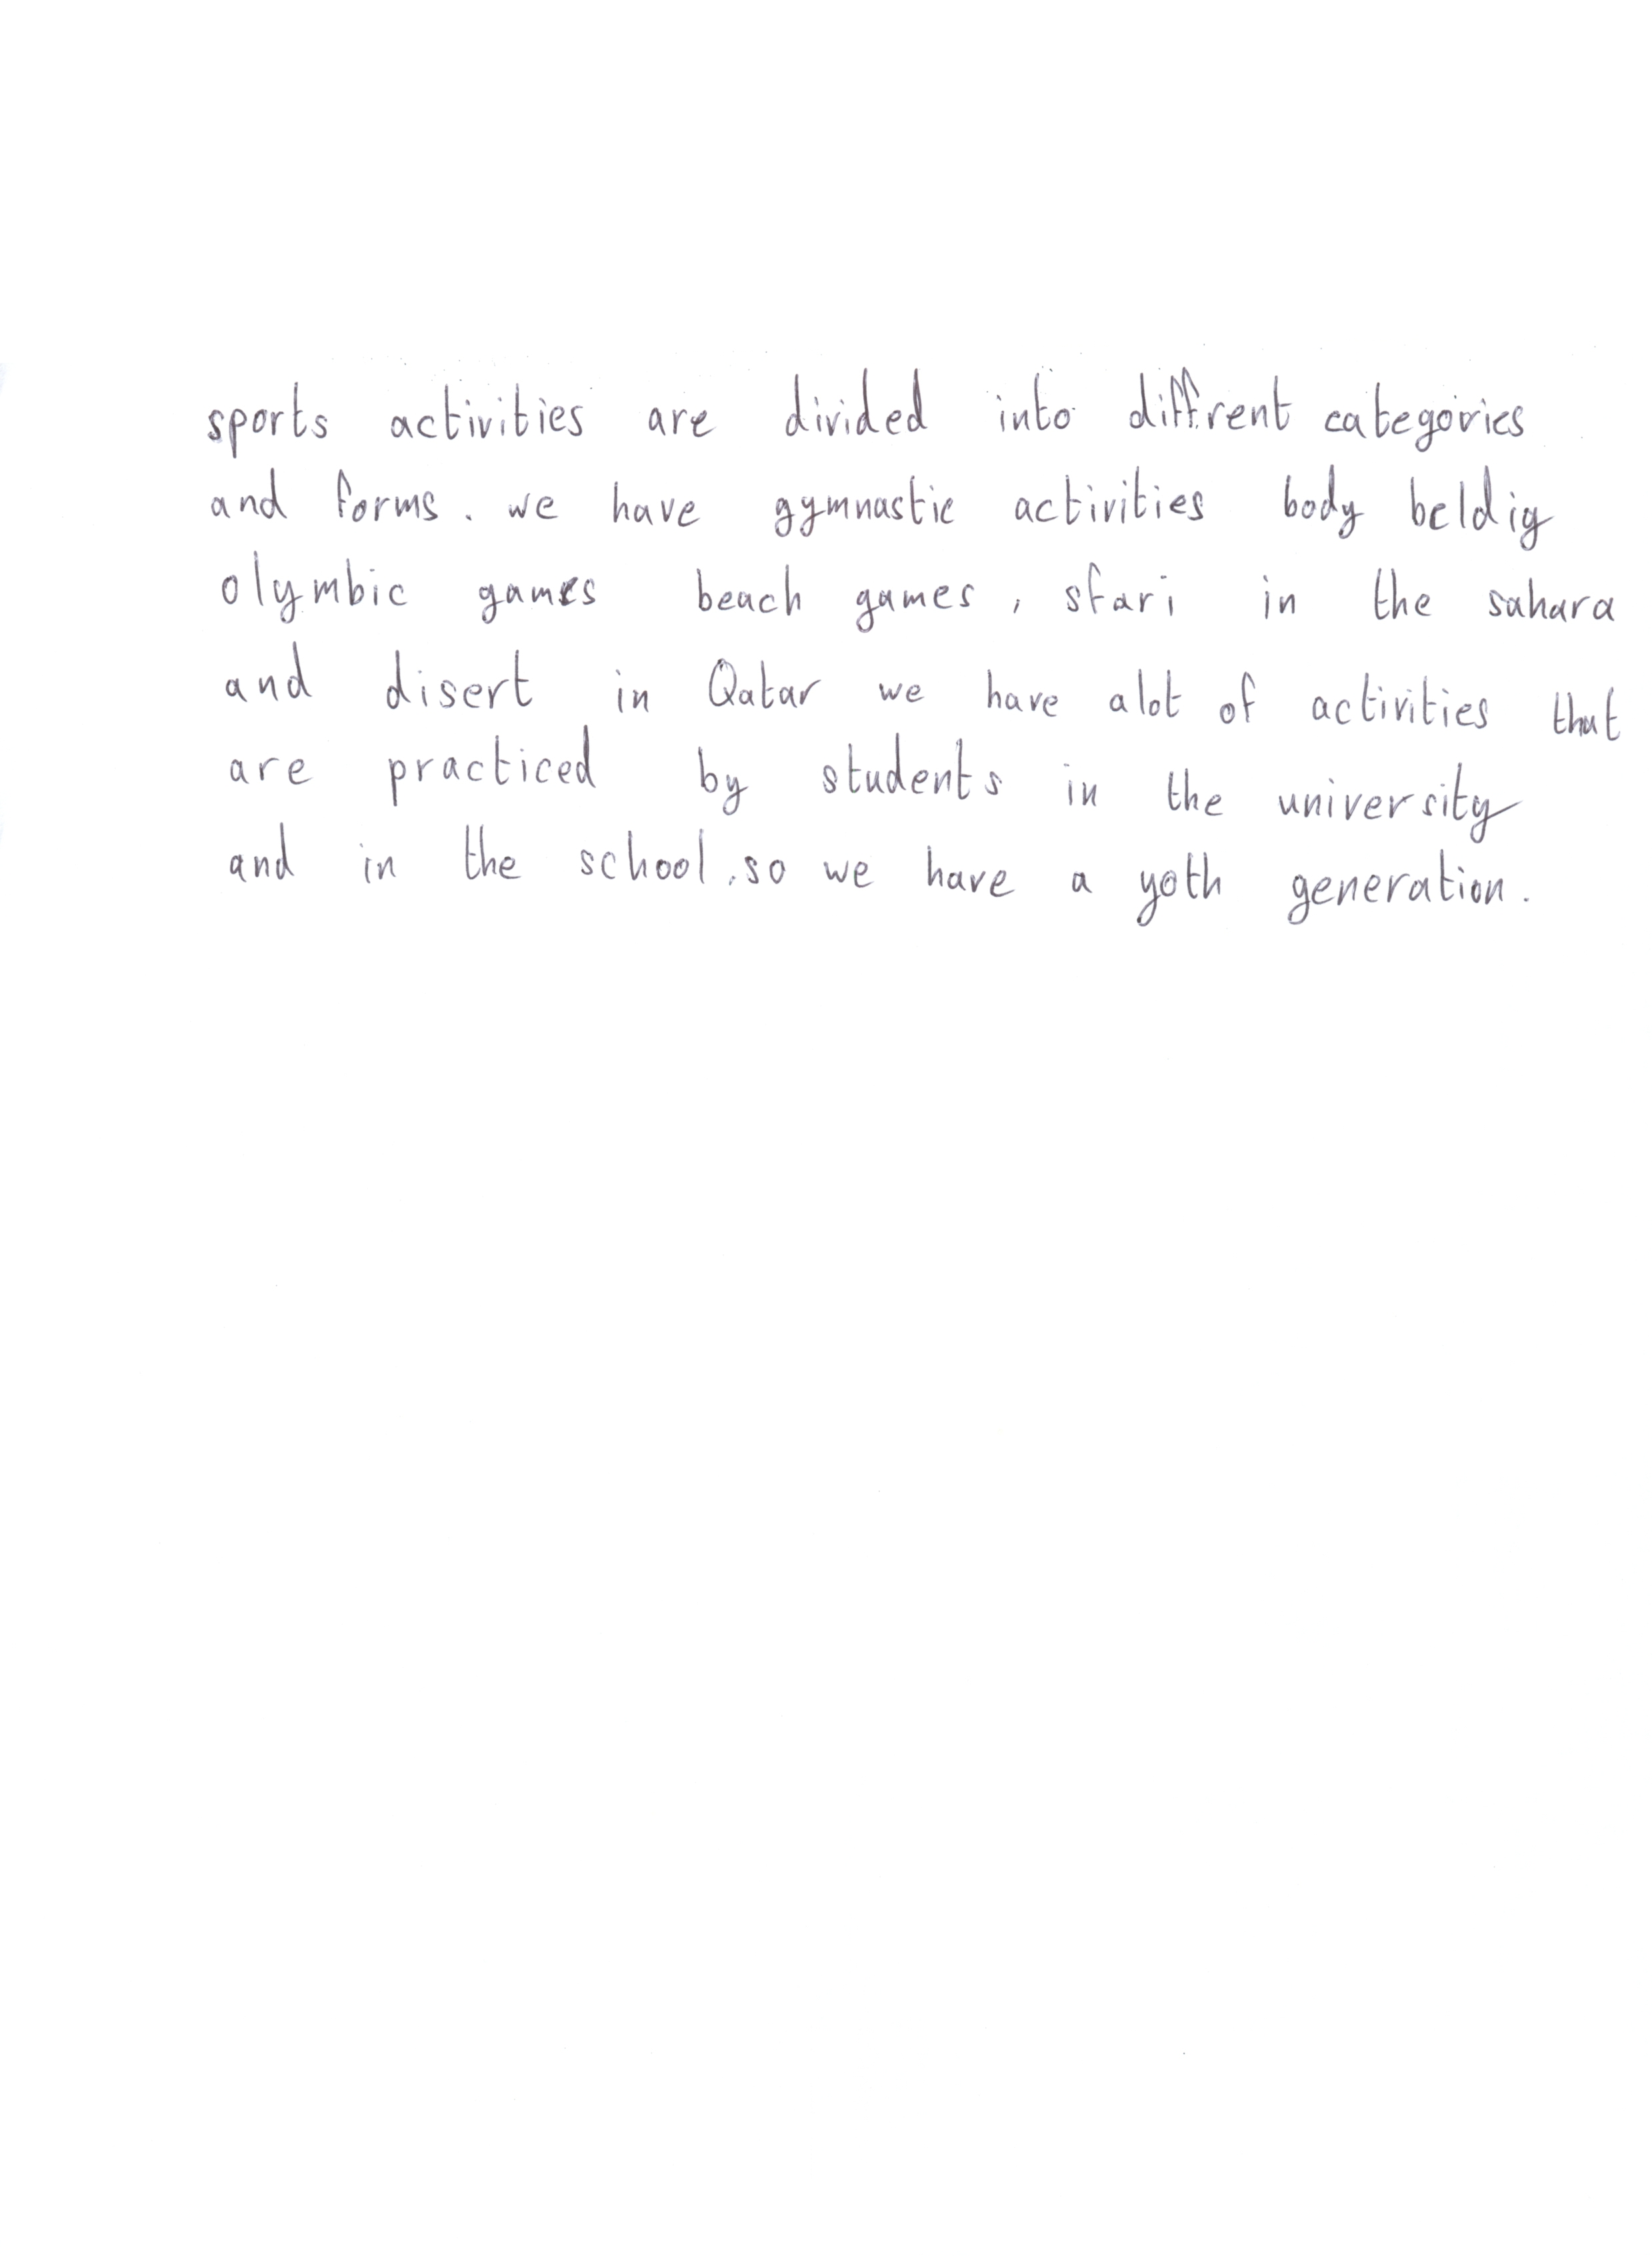 sports activities are divided into diffrent categories
and forms. we have gymnastic activities body beldig
olymbic games beach games, sfari in the sahara
and disert in Qatar we have alot of activities that
are practiced by students in the university
and in the school. so we have a yoth generation.